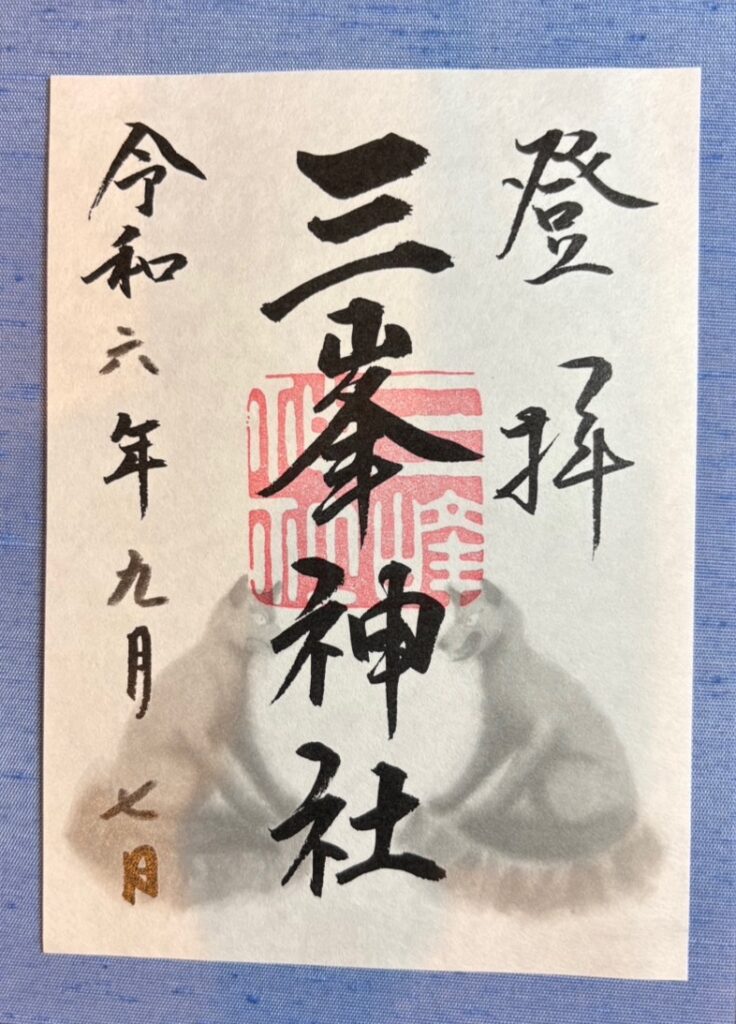 登拝
三峯神社
三峰
神社
令和六年九月七日